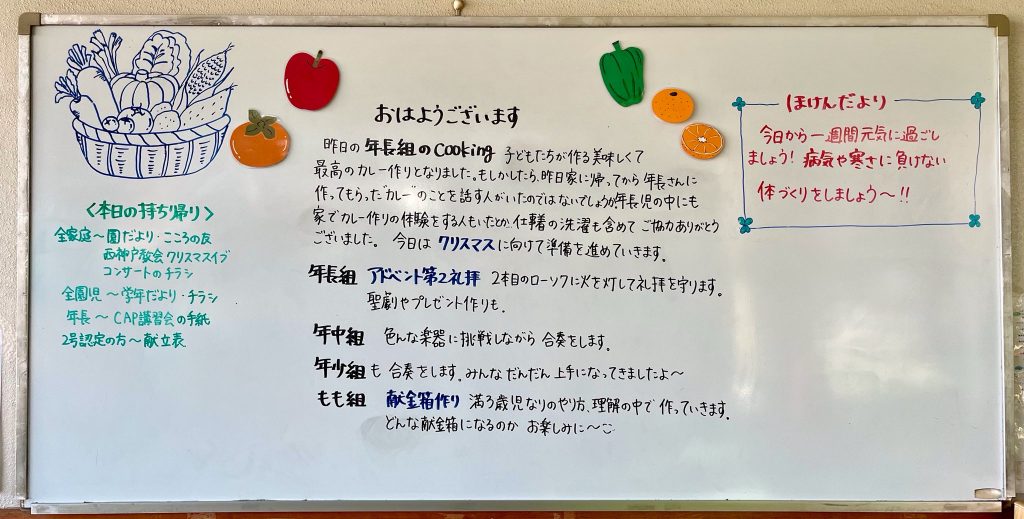 おはようございます
昨日の 年長組のCooking 子どもたちが作る美味しくて
最高のカレー作りとなりました。もしかしたら、昨日家に帰ってから年長さんに
作ってもらった"カレー"のことを話す人がいたのではないでしょうか年長児の中にも
家でカレー作りの体験をする人もいたとか。仕事着の洗濯も含めて ご協力ありがとう
ございました。 今日は クリスマスに向けて準備を進めていきます。
年長組 アドベント第2礼拝 2本目のローソクに火を灯して礼拝を守ります。
聖劇やプレゼント作りも。
年中組 色んな楽器に挑戦しながら 合奏をします。
年少組も 合奏をします。みんなだんだん上手になってきましたよ〜
もも組 献金箱作り 満3歳児なりのやり方、理解の中で 作っていきます。
どんな献金箱になるのか お楽しみに〜
<本日の持ち帰り>
全家庭〜園だより・こころの友
西神戸教会クリスマスイブ
コンサートのチラシ
全園児〜学年だより・チラシ
年長〜CAP講習会の手紙
2号認定の方〜献立表
ほけんだより
今日から一週間元気に過ごし
ましょう! 病気や寒さに負けない
体づくりをしましょう〜!!